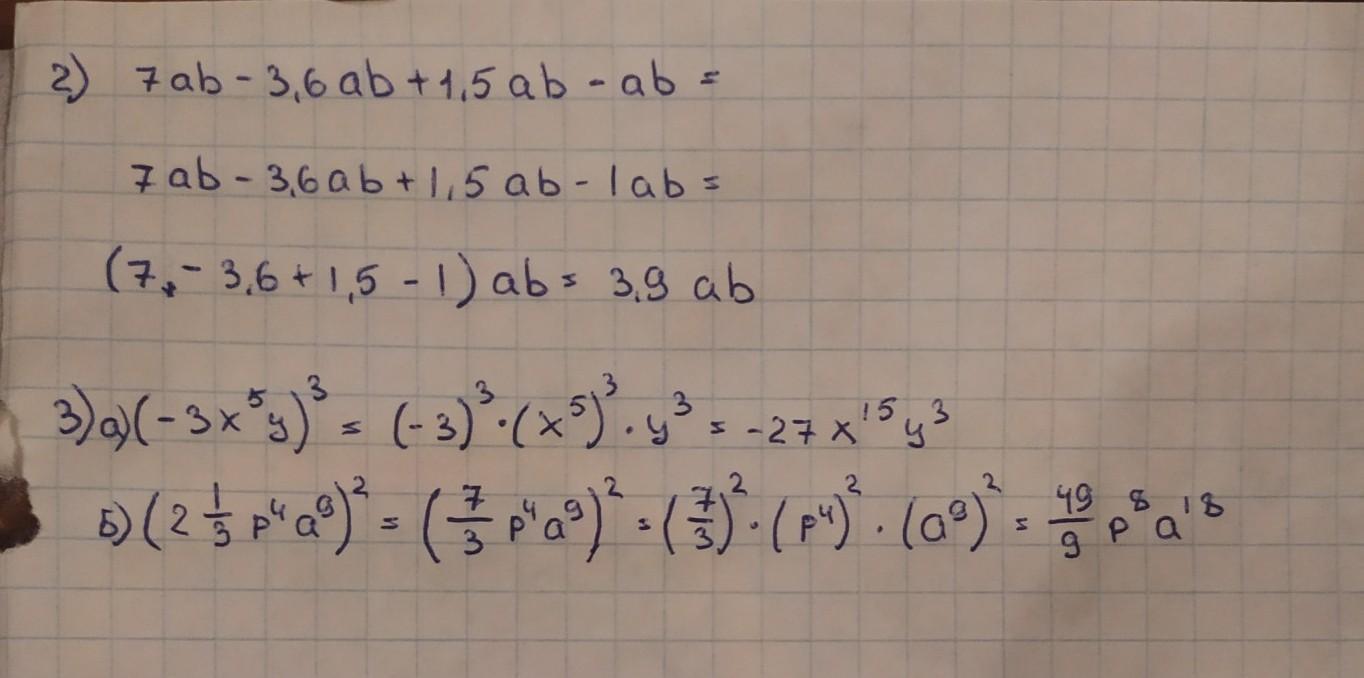 2) 7ab - 3,6ab + 1,5ab - ab =
7ab - 3,6ab + 1,5ab - 1ab =
(7, - 3,6 + 1,5 - 1) ab = 3,9 ab
3) а) (-3x⁵y)³ = (-3)³ · (x⁵)³ · y³ = -27x¹⁵y³
Б) (2 1/3 p⁴a⁹)² = (7/3 p⁴a⁹)² = (7/3)² · (p⁴)² · (a⁹)² = 49/9 p⁸a¹⁸